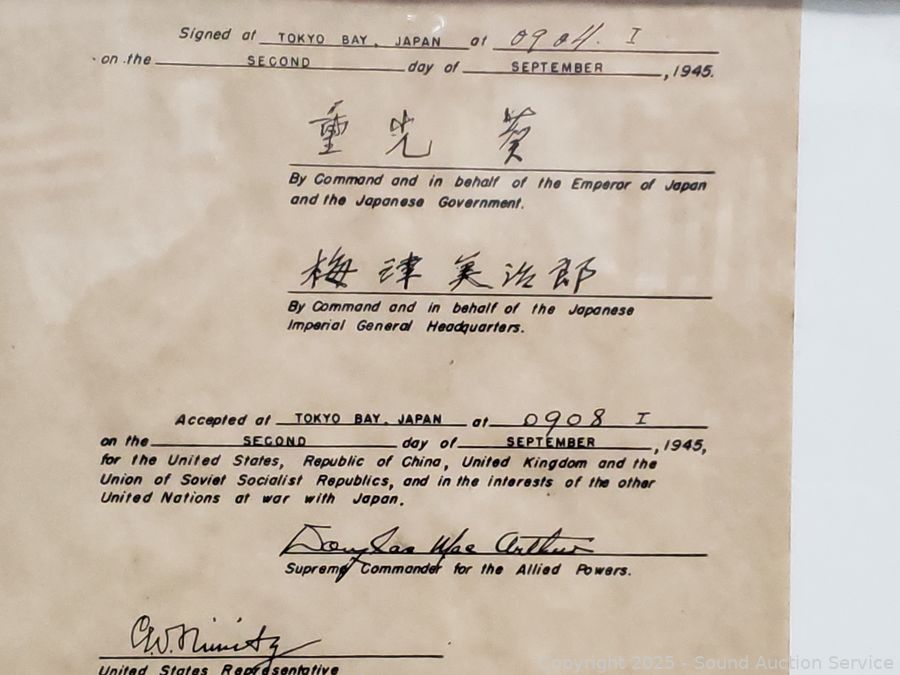 Signed at TOKYO BAY, JAPAN at 0904 I
on the SECOND day of SEPTEMBER, 1945.
重光 葵
By Command and in behalf of the Emperor of Japan
and the Japanese Government.
梅津美治郎
By Command and in behalf of the Japanese
Imperial General Headquarters.
Accepted at TOKYO BAY, JAPAN at 0908 I
on the SECOND day of SEPTEMBER, 1945,
for the United States, Republic of China, United Kingdom and the
Union of Soviet Socialist Republics, and in the interests of the other
United Nations at war with Japan.
Douglas MacArthur
Supreme Commander for the Allied Powers.
C.W. Nimitz
United States Representative
Copyright 2025 - Sound Auction Service